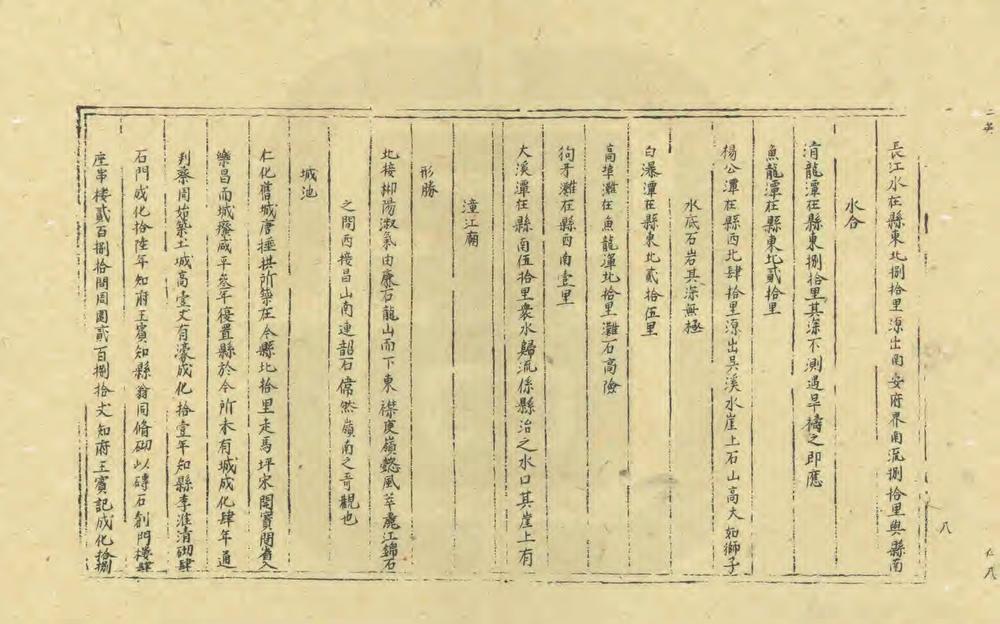 長江水在縣東北捌拾里源出南安府界南流捌拾里與縣南
水合
湞龍潭在縣東捌拾里其深不測遇旱禱之即應
魚龍潭在縣東北貳拾里
楊公潭在縣西北肆拾里源出吳溪水崖上石山高大如獅子
水底石岩其深無極
白瀑潭在縣東北貳拾伍里
高埠灘在魚龍潭北拾里灘石高險
狗牙灘在縣西南壹里
大溪潭在縣南伍拾里衆水歸流係縣治之水口其崖上有
潼江廟
形勝
北接郴陽淑氣由廉石龍山而下東襟庾嶺懿風萃麗江錦石
之間西接昌山南連韶石儻然嶺南之奇觀也
城池
仁化舊城唐垂拱所築在今縣北拾里走馬坪宋開寶閒省入
樂昌而城廢咸平叁年復置縣於今所本有城成化肆年通
判蔡周始築土城高壹丈有濠成化拾壹年知縣李淮清砌肆
石門成化拾陸年知府王賓知縣翁同脩砌以磚石創門樓肆
座串樓貳百捌拾間周圍貳百捌拾丈知府王賓記成化拾捌
八